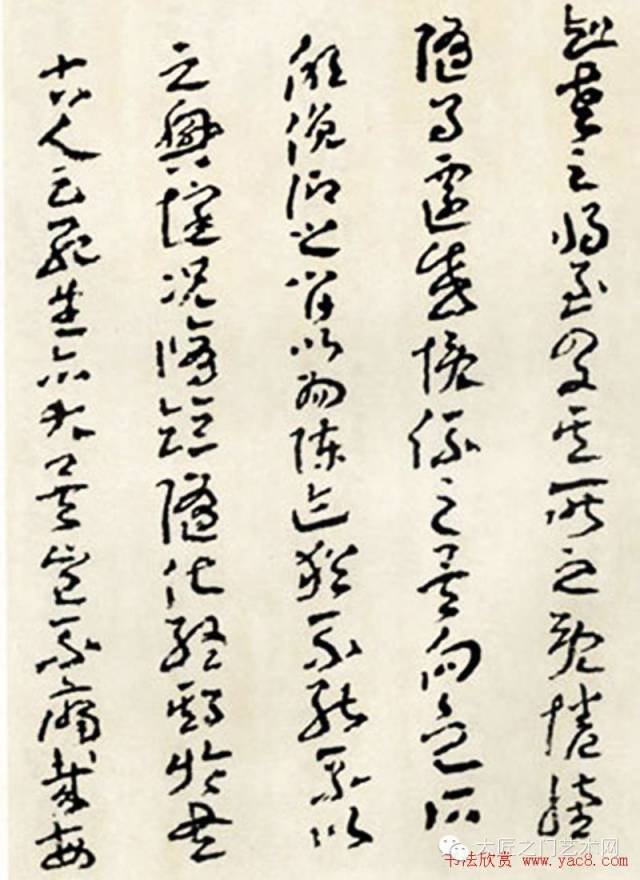 知老之將至及其所之既惓情
隨事遷感慨係之矣向之所
欣俛仰之間以為陳迹猶不能不以
之興懷況脩短隨化終期於盡
古人云死生亦大矣豈不痛哉每
大匠之门艺术网
书法欣赏 www.yac8.com